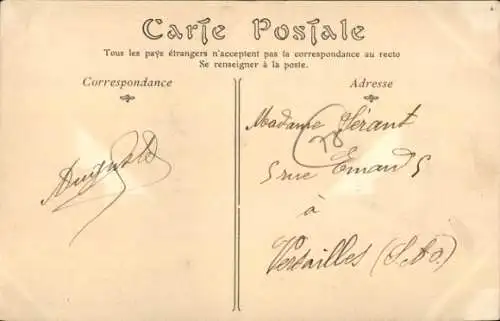 Carte Postale
Tous les pays étrangers n'acceptent pas la correspondance au recto
Se renseigner à la poste.
Correspondance
Adresse
Madame Hérant
5 rue
à
Versailles (S.&O.)